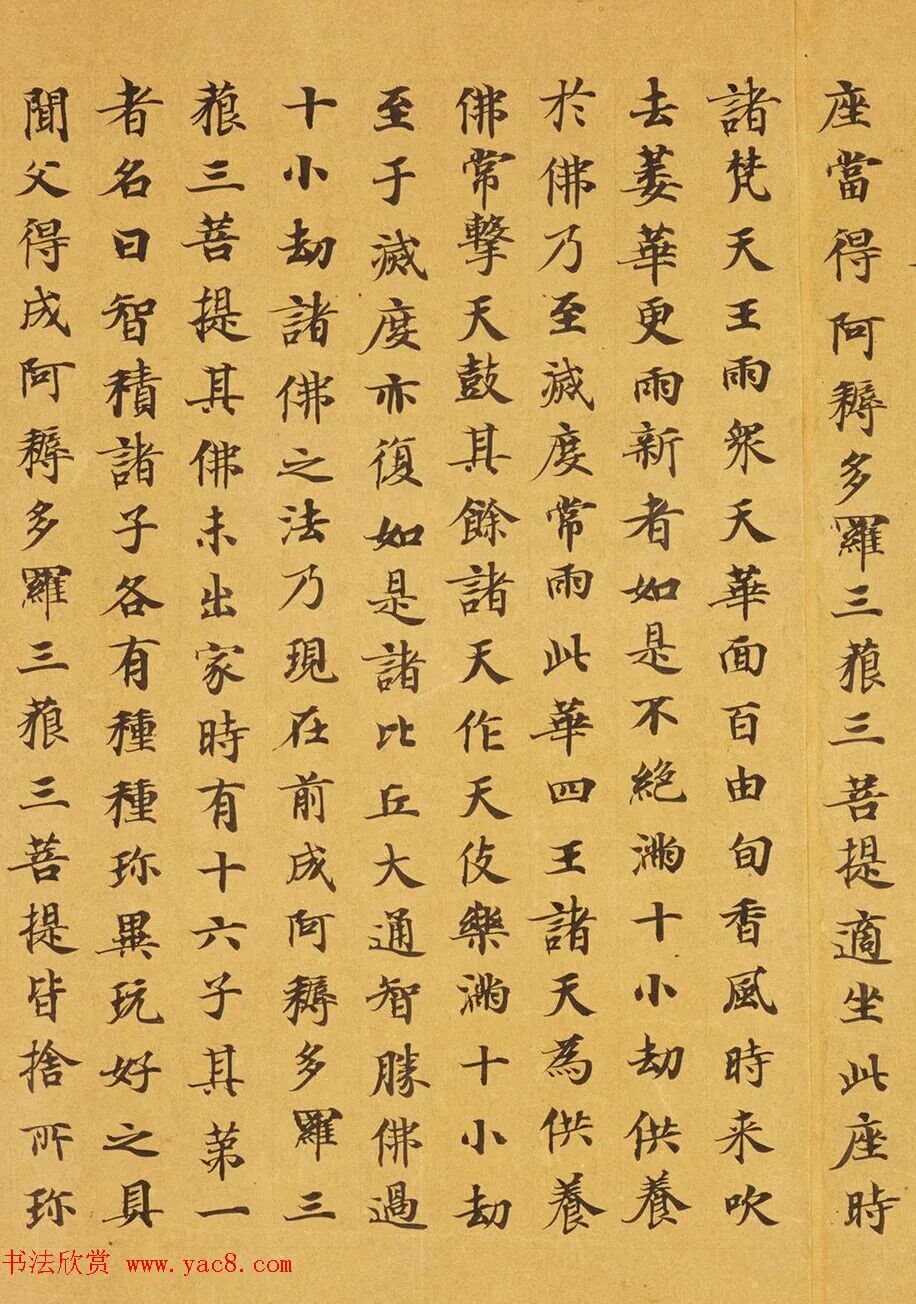 座當得阿耨多羅三藐三菩提適坐此座時
諸梵天王雨衆天華面百由旬香風時来吹
去萎華更雨新者如是不絶滿十小劫供養
於佛乃至滅度常雨此華四王諸天為供養
佛常擊天鼓其餘諸天作天伎樂滿十小劫
至于滅度亦復如是諸比丘大通智勝佛過
十小劫諸佛之法乃現在前成阿耨多羅三
藐三菩提其佛未出家時有十六子其第一
者名曰智積諸子各有種種珎異玩好之具
聞父得成阿耨多羅三藐三菩提皆捨所珎
书法欣赏 www.yac8.com